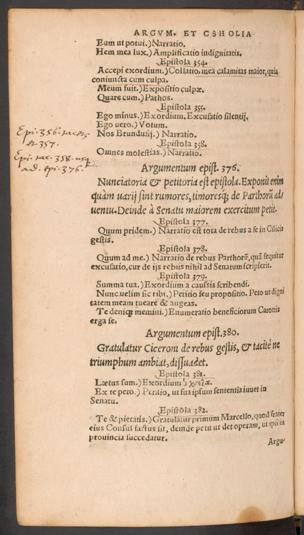 ARGVM. ET CSHOLIA
Eam ut potui.) Narratio.
Hem mea lux.) Amplificatio indignitatis.
Epistola 354.
Accepi exordium.) Collatio. mea calamitas maior, quia
coniuncta cum culpa.
Meum fuit.) Expositio culpæ.
Quare cum.) Pathos.
Epistola 355.
Ego minus.) Exordium. Excusatio silentij.
Ego uero.) Votum.
Nos Brundusij.) Narratio.
Epistola 358.
Omnes molestias.) Narratio.
Epi: 356.
357.
Epi: 358. usq
ad. epi: 376.
Argumentum epist. 376.
Nunciatoria & petitoria est epistola. Exponit enim
quàm uarij sint rumores, timoresq; de Parthorũ ad
uentu. Deinde à Senatu maiorem exercitum petit.
Epistola 377.
Quum pridem.) Narratio est tota de rebus a se in Cilicia
gestis.
Epistola 378.
Quum ad me.) Narratio de rebus Parthorũ, quã sequitur
excusatio, cur de ijs rebus nihil ad Senatum scripserit.
Epistola 379.
Summa tua.) Exordium a causis scribendi.
Nunc uelim sic tibi.) Petitio seu propositio. Peto ut digni
tatem meam tueare & augeas.
Te deniq; memini.) Enumeratio beneficiorum Catonis
erga se.
Argumentum epist. 380.
Gratulatur Ciceroni de rebus gestis, & tacitè ne
triumphum ambiat, dissuadet.
Epistola 381.
Lætus sum.) Exordium à
Ex te peto.) Petitio, ut sua ipsum sententia iuuet in
Senatu.
Epistola 382.
Te & pietatis.) Gratulatur primum Marcello, quod frater
eius Consul factus sit, deinde petit ut det operam, ut ipsi in
prouincia succedatur.
Argu-